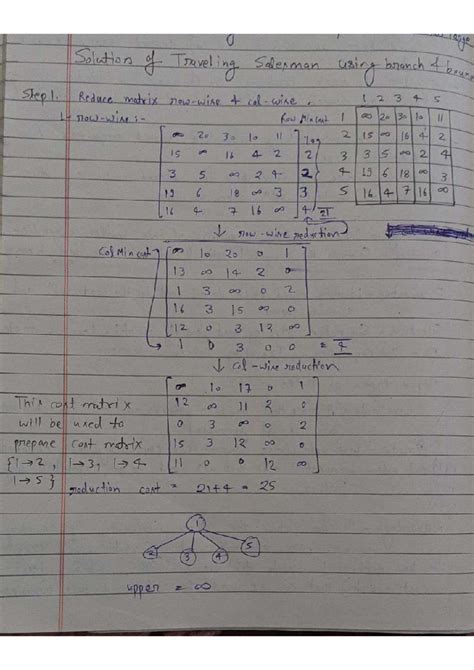 Solution of Traveling Salesman using branch & bound
Step 1. Reduce matrix row-wise & col-wise.
1 2 3 4 5
↳ row-wise :- Row Min Cost
1 ∞ 20 30 10 11
2 15 ∞ 16 4 2
3 3 5 ∞ 2 4
4 19 6 18 ∞ 3
5 16 4 7 16 ∞
∞ 20 30 10 11 10
15 ∞ 16 4 2 2
3 5 ∞ 2 4 2
19 6 18 ∞ 3 3
16 4 7 16 ∞ 4
21
↓ row-wise reduction
Col Min cost
∞ 10 20 0 1
13 ∞ 14 2 0
1 3 ∞ 0 2
16 3 15 ∞ 0
12 0 3 12 ∞
1 0 3 0 0 = 4
↓ col-wise reduction
∞ 10 17 0 1
12 ∞ 11 2 0
0 3 ∞ 0 2
15 3 12 ∞ 0
11 0 0 12 ∞
This cost matrix
will be used to
prepare cost matrix
{1→2, 1→3, 1→4
1→5}
reduction cost = 21+4 = 25
1
2 3 4 5
upper = ∞